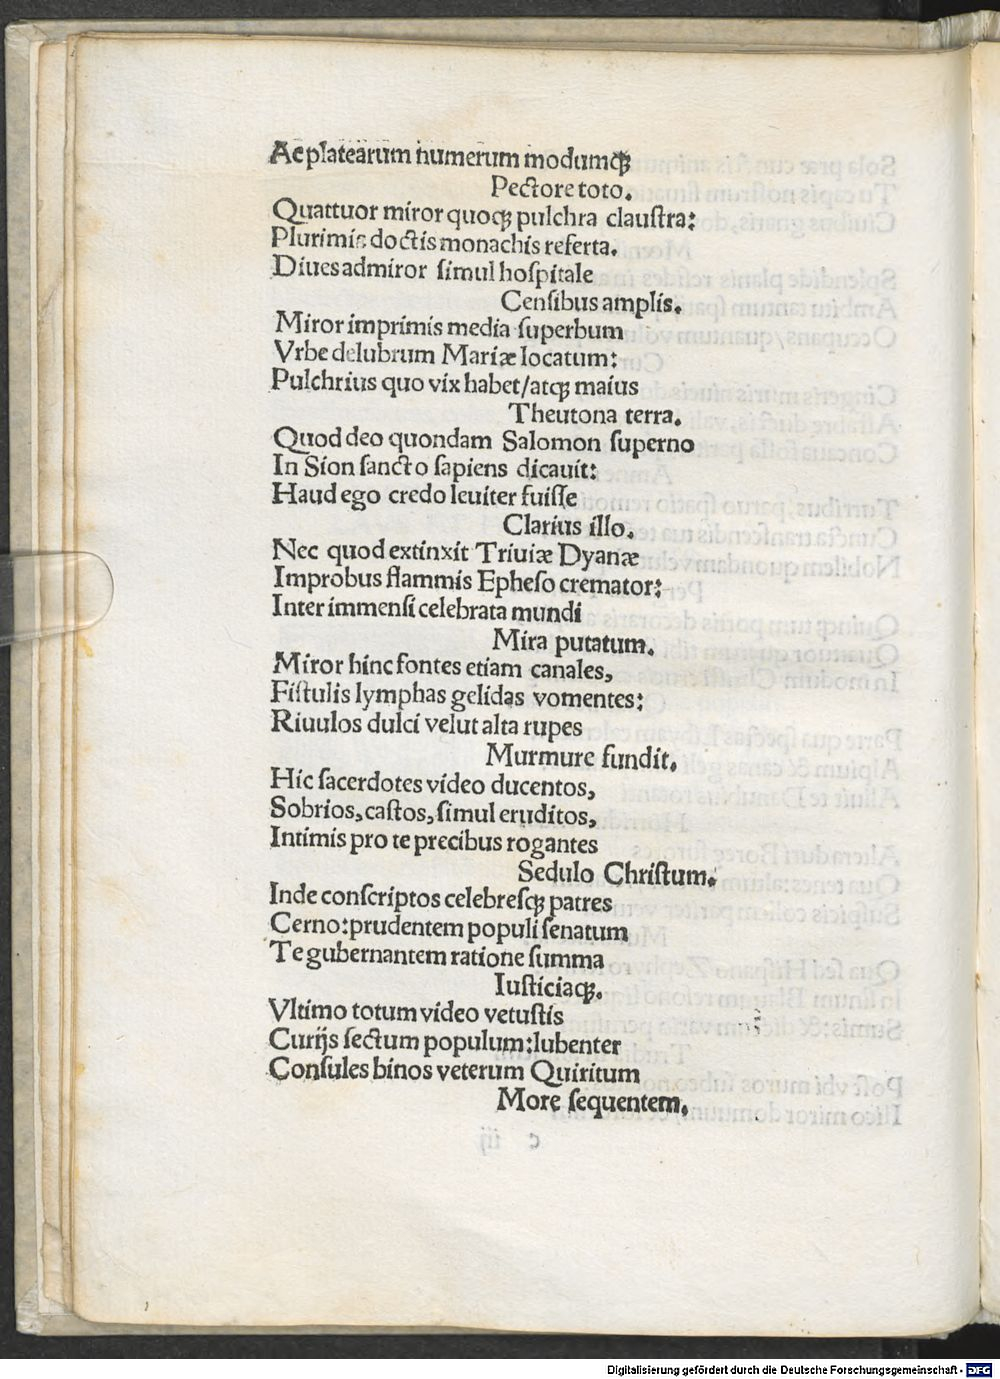 Ac platearum numerum modumqꝫ
Pectore toto.
Quattuor miror quoqꝫ pulchra clauſtra:
Plurimis doctis monachis referta.
Diues admiror ſimul hoſpitale
Cenſibus amplis.
Miror imprimis media ſuperbum
Vrbe delubrum Mariæ locatum:
Pulchrius quo vix habet/atqꝫ maius
Theutona terra.
Quod deo quondam Salomon ſuperno
In Sion ſancto ſapiens dicauit:
Haud ego credo leuiter fuiſſe
Clarius illo.
Nec quod extinxit Triuiæ Dyanæ
Improbus flammis Epheſo cremator:
Inter immenſi celebrata mundi
Mira putatum.
Miror hinc fontes etiam canales,
Fiſtulis lymphas gelidas vomentes:
Riuulos dulci velut alta rupes
Murmure fundit.
Hic ſacerdotes video ducentos,
Sobrios, caſtos, ſimul eruditos,
Intimis pro te precibus rogantes
Sedulo Chriſtum.
Inde conſcriptos celebreſqꝫ patres
Cerno: prudentem populi ſenatum
Te gubernantem ratione ſumma
Iuſticiaqꝫ.
Vltimo totum video vetuſtis
Curijs ſectum populum: lubenter
Conſules binos veterum Quiritum
More ſequentem.
Digitalisierung gefördert durch die Deutsche Forschungsgemeinschaft - DFG